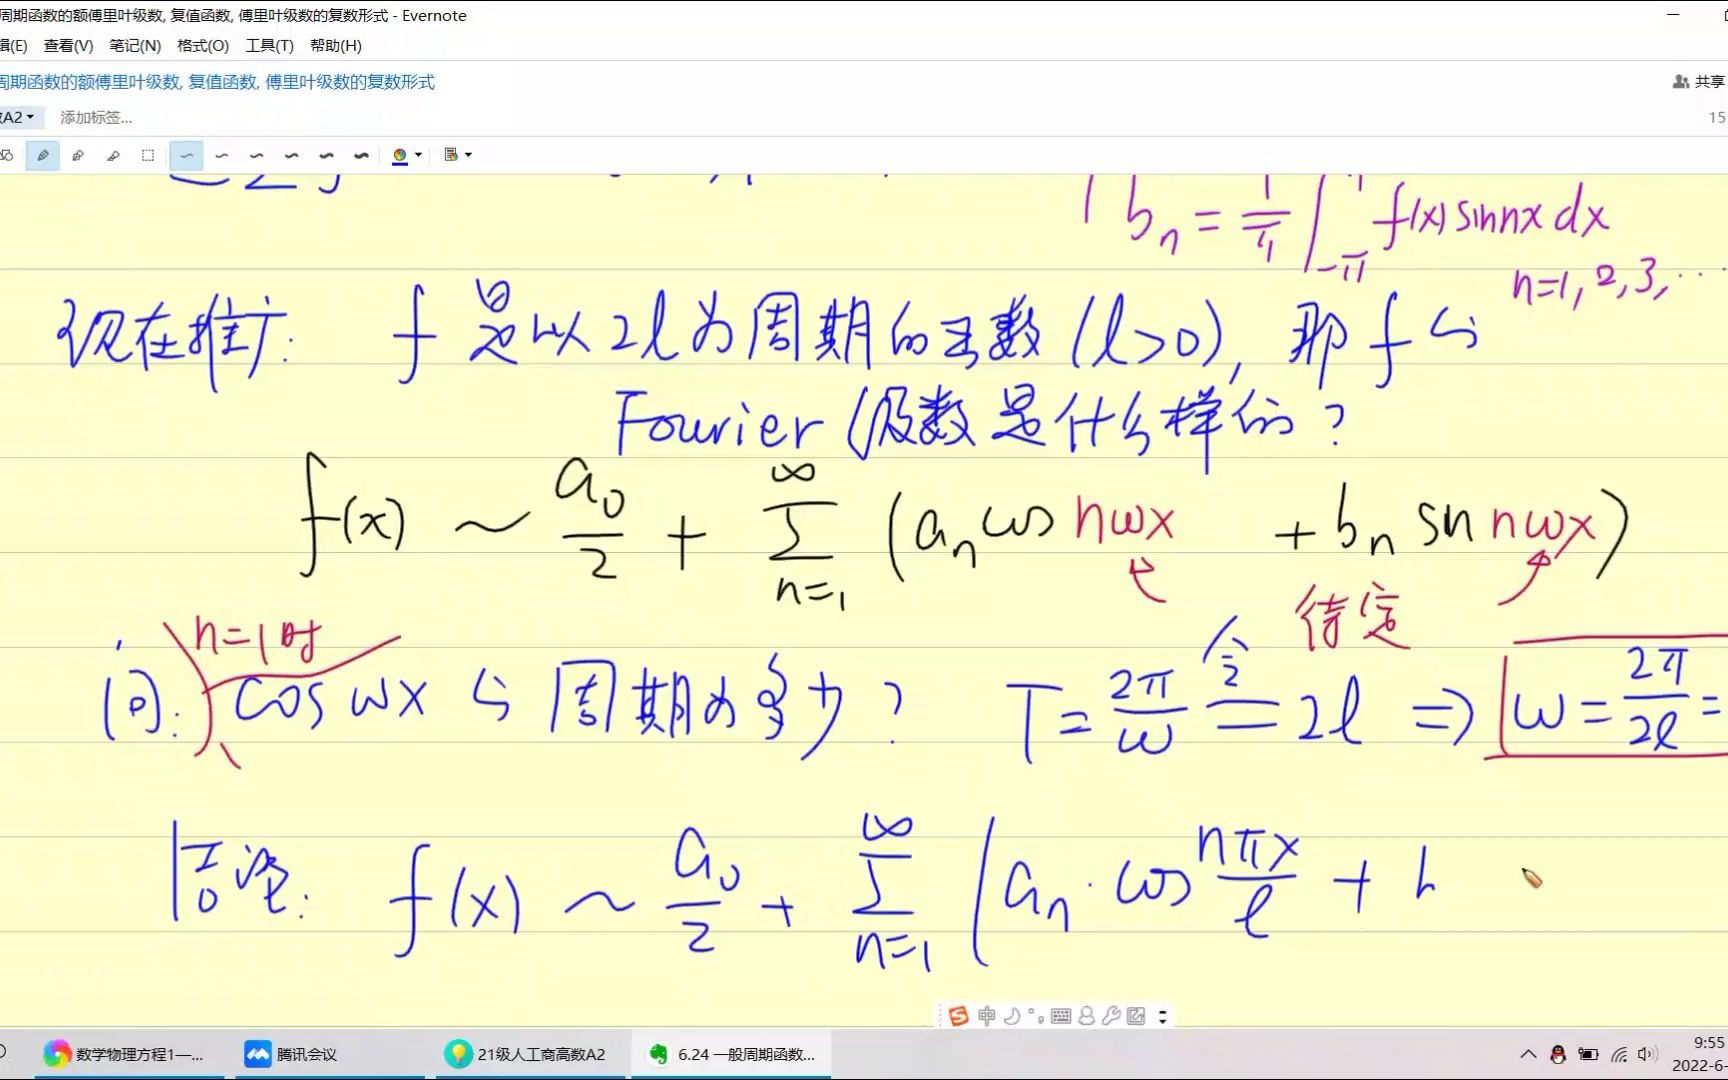 周期函数的额傅里叶级数, 复值函数, 傅里叶级数的复数形式 - Evernote
辑(E) 查看(V) 笔记(N) 格式(O) 工具(T) 帮助(H)
周期函数的额傅里叶级数, 复值函数, 傅里叶级数的复数形式 共享
数A2 添加标签... 15
b_n = 1/π ∫_{-π}^{π} f(x) sin nx dx
n=1, 2, 3, ⋯
现在推广: f 是以 2l 为周期的函数 (l>0), 那 f 的
Fourier 级数是什么样的?
f(x) ~ a_0/2 + Σ_{n=1}^{∞} (a_n cos nωx + b_n sin nωx)
待定
n=1时
问: cos ωx 的周期为多少? T = 2π/ω 令= 2l ⇒ ω = 2π/2l =
结论: f(x) ~ a_0/2 + Σ_{n=1}^{∞} (a_n · cos nπx/l +
中
数学物理方程1—... 腾讯会议 21级人工商高数A2 6.24 一般周期函数... 9:55
2022-6-